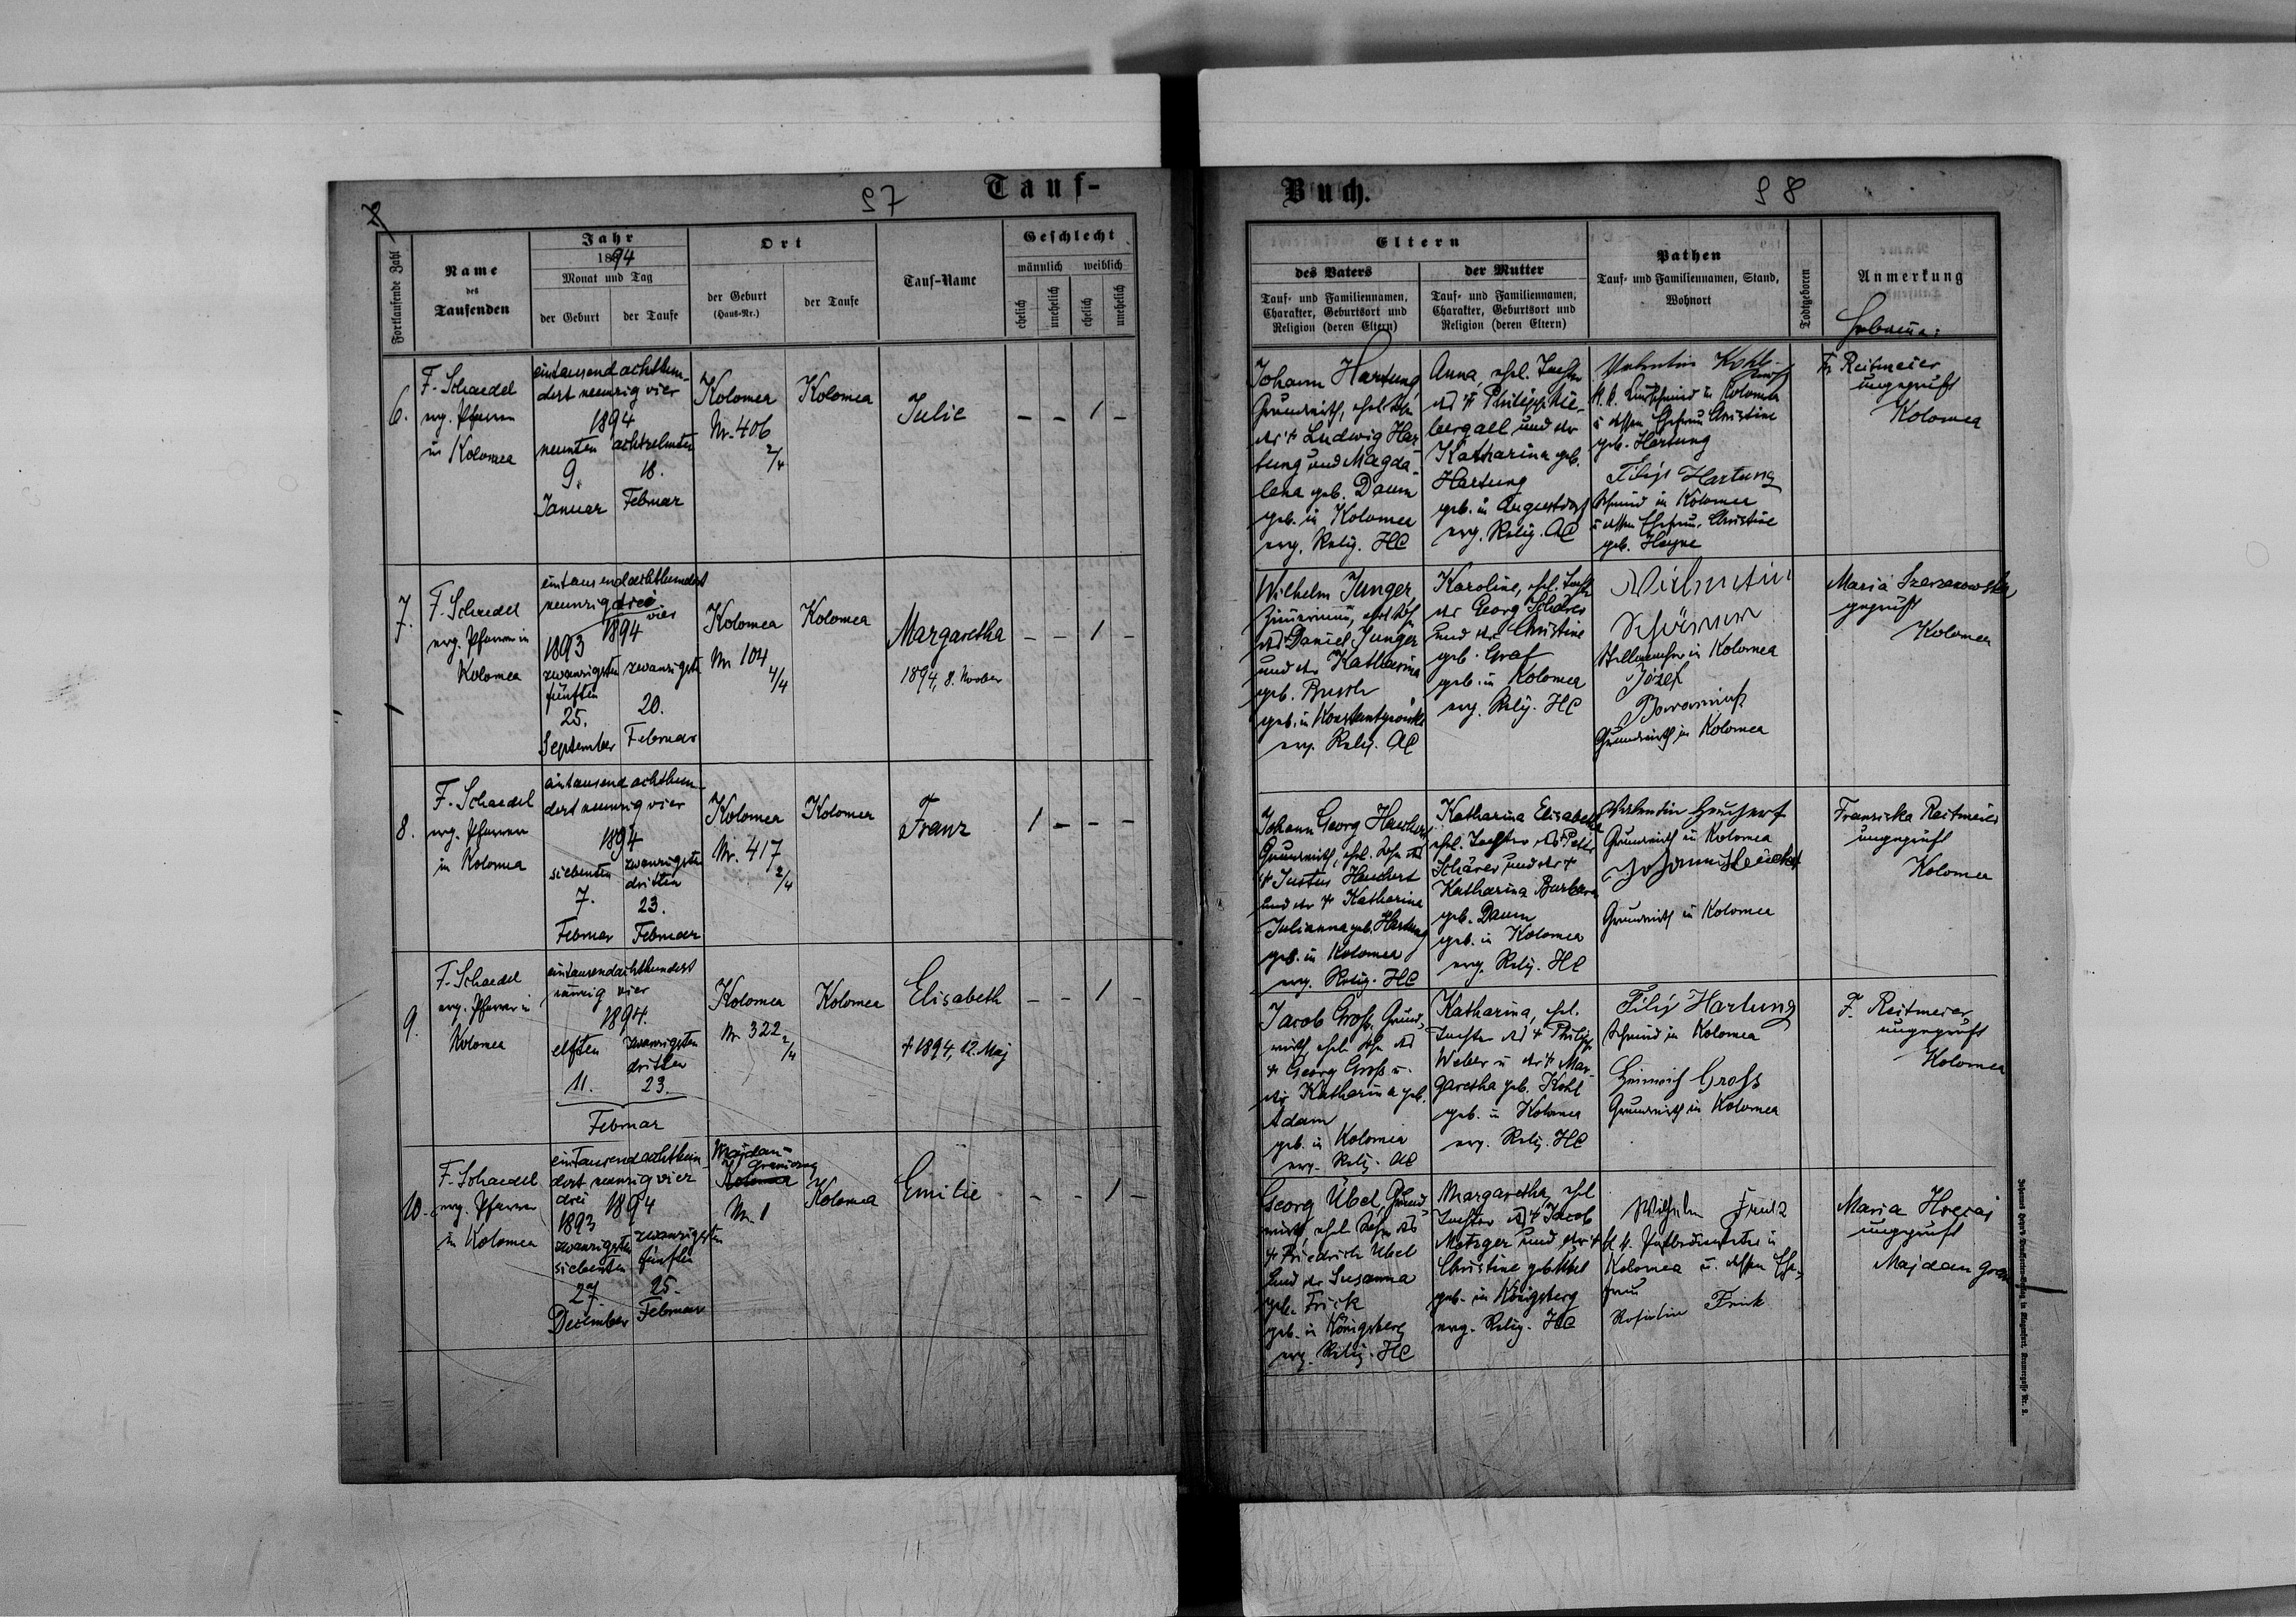 97
Tauf-
7
Fortlaufende Zahl
Name
des
Taufenden
Jahr
1894
Monat und Tag
der Geburt
der Taufe
Ort
der Geburt
(Haus-Nr.)
der Taufe
Tauf-Name
Geschlecht
männlich
weiblich
ehelich
unehelich
ehelich
unehelich
6.
F. Schaedel
evg. Pfarrer
in Kolomea
eintausend achthun-
dert neunzig vier
1894
neunten achtzehnten
9. 18.
Januar Februar
Kolomea
Nr. 406
2/4
Kolomea
Julie
– – 1 –
7.
F. Schaedel
evg. Pfarrer in
Kolomea
eintausendachthundert
neunzig drei
vier
1893 1894
zwanzigsten zwanzigsten
fünften
25. 20.
September Februar
Kolomea
Nr. 104
4/4
Kolomea
Margaretha
1894, 8. November
– – 1 –
8.
F. Schaedel
evg. Pfarrer
in Kolomea
eintausend achthun-
dert neunzig vier
1894
siebenten zwanzigsten
dritten
7. 23.
Februar Februar
Kolomea
Nr. 417
2/4
Kolomea
Franz
1 – – –
9.
F. Schaedel
evg. Pfarrer in
Kolomea
eintausendachthundert
neunzig vier
1894.
elften zwanzigsten
dritten
11. 23.
Februar
Kolomea
Nr. 322
2/4
Kolomea
Elisabeth
† 1894, 12. Maj
– – 1 –
10.
F. Schaedel
evg. Pfarrer
in Kolomea
eintausendachthun-
dert neunzig vier
drei 1894
1893
zwanzigsten zwanzigsten
siebenten fünften
27. 25.
December Februar
Majdan-
Graniczny
Kolomea
Nr. 1
Kolomea
Emilie
– – 1 –
Buch.
98
Eltern
des Vaters
Tauf- und Familiennamen,
Charakter, Geburtsort und
Religion (deren Eltern)
der Mutter
Tauf- und Familiennamen,
Charakter, Geburtsort und
Religion (deren Eltern)
Pathen
Tauf- und Familiennamen, Stand,
Wohnort
Todtgeboren
Anmerkung
Hebamme:
Johann Hartung
Grundwirth, ehel. Sohn
des † Ludwig Har-
tung und Magda-
lena geb. Daum
geb. in Kolomea
evg. Relig. HC
Anna, ehel. Tochter
des † Philipp
und der
Katharina geb.
Hartung
geb. in Augustdorf
evg. Relig. AC
Valentin Kohl
k. k. in Kolomea
u. dessen Ehefrau Christine
geb. Hartung
Filip Hartung
Schmied in Kolomea
u. dessen Ehefrau Christine
geb. Heyne
F. Reitmeier
ungeprüft
Kolomea
Wilhelm Junger
Zimmermann, ehel. Sohn
des Daniel Junger
und der Katharina
geb.
geb. in
evg. Relig. AC
Karoline, ehel. Tochter
des Georg
und der Christine
geb. Graf
geb. in Kolomea
evg. Relig. HC
in Kolomea
Józef
Grundwirth in Kolomea
Maria
geprüft
Kolomea
Johann Georg
Grundwirth, ehel. Sohn des
† Justus Heuchert
und der † Katharina
Julianna geb. Hartung
geb. in Kolomea
evg. Relig. HC
Katharina Elisabeth
ehel. Tochter des Peter
Schärer und der †
Katharina Barbara
geb. Daum
geb. in Kolomea
evg. Relig. HC
Valentin Heuchert
Grundwirth in Kolomea
Grundwirth in Kolomea
Franziska Reitmeier
ungeprüft
Kolomea
Jacob Groß, Grund-
wirth, ehel. Sohn des
† Georg Groß u.
der Katharina geb.
Adam
geb. in Kolomea
evg. Relig. AC
Katharina, ehel.
Tochter des † Philipp
Weber u. der † Mar-
garetha geb. Kohl
geb. in Kolomea
evg. Relig. HC
Filip Hartung
Schmied in Kolomea
Heinrich Groß
Grundwirth in Kolomea
F. Reitmeier
ungeprüft
Kolomea
Georg Übel, Grund-
wirth, ehel. Sohn des
† Friedrich Übel
und der Susanna
geb. Frick
geb. in Königsberg
evg. Relig. HC
Margaretha, ehel.
Tochter des † Jacob
Metzger und der †
Christine geb. Übel
geb. in Königsberg
evg. Relig. HC
Wilhelm
k. k. in
Kolomea u. dessen Ehe-
frau
Maria
ungeprüft
Majdan gran